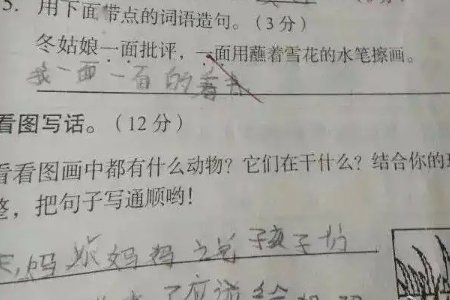 5. 用下面带点的词语造句。(3分)
冬姑娘一面批评，一面用蘸着雪花的水笔擦画。
我一面一面的看书
看图写话。(12分)
看看图画中都有什么动物？它们在干什么？结合你的
整，把句子写通顺哟！
妈 妈妈 孩子
了应说给